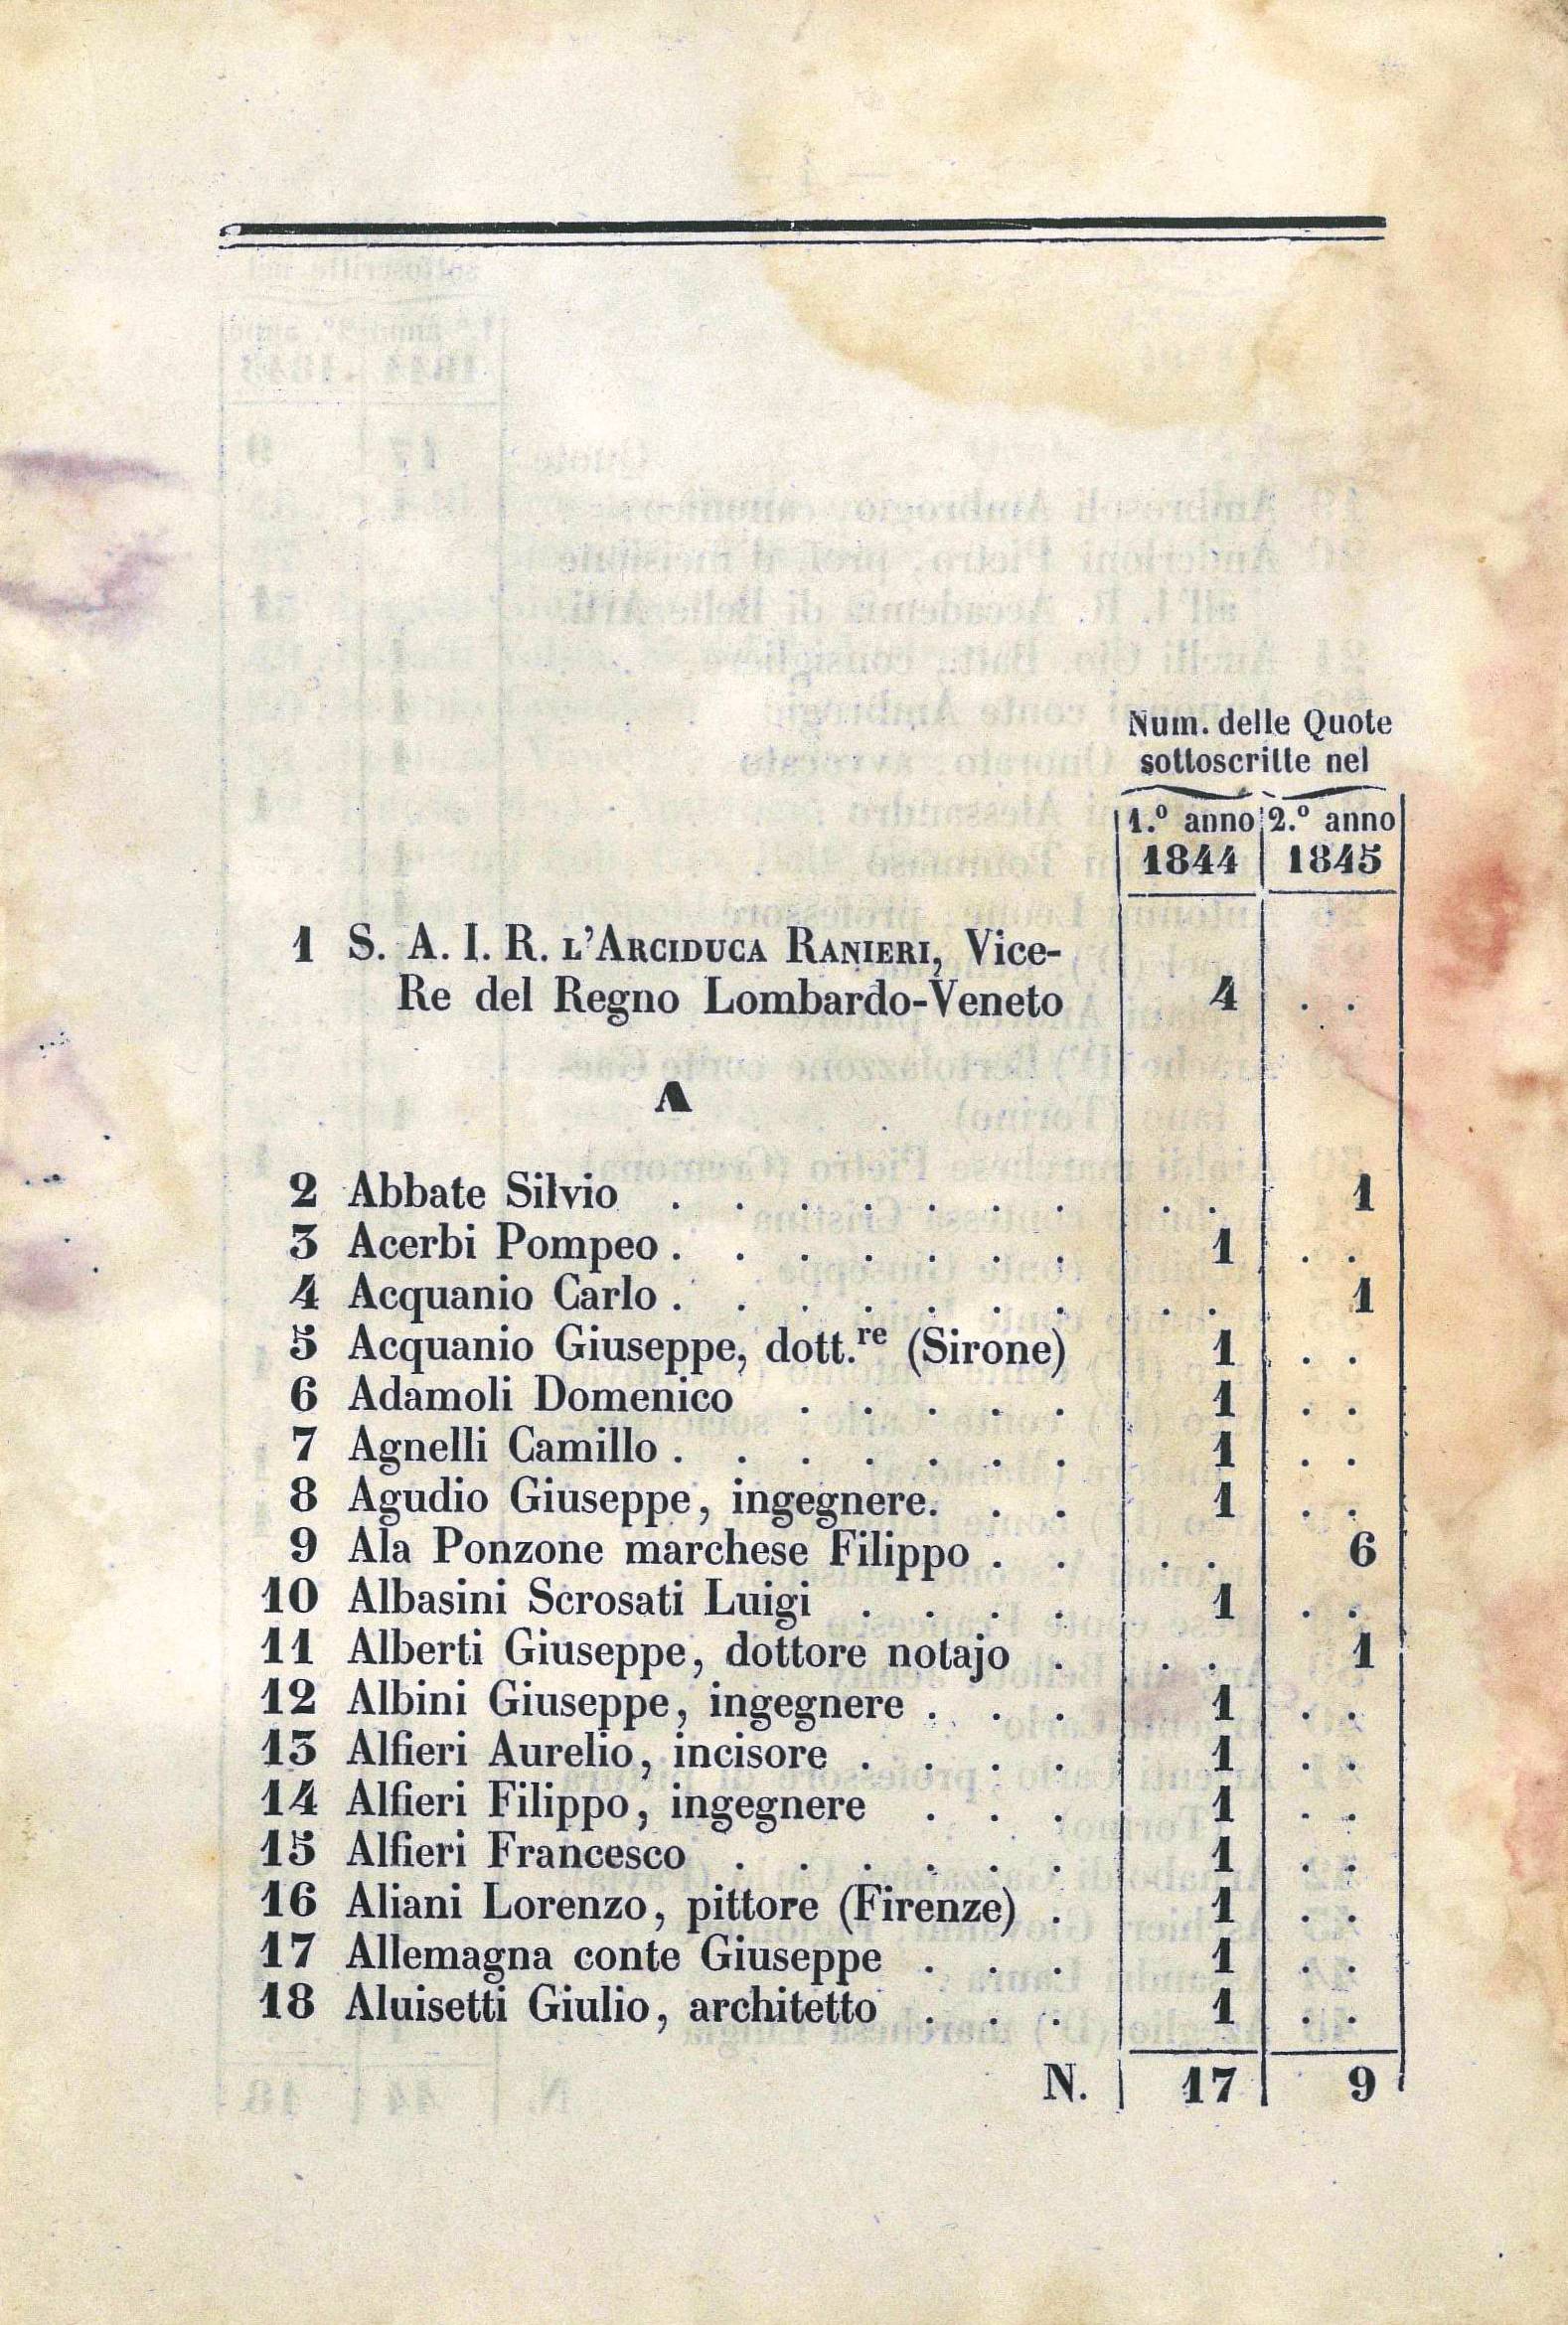 Num. delle Quote
sottoscritte nel
1.º anno 2.º anno
1844 1845
1 S. A. I. R. L'ARCIDUCA RANIERI, Vice-
Re del Regno Lombardo-Veneto 4 . .
A
2 Abbate Silvio . . . . . . . . . 1
3 Acerbi Pompeo . . . . . . . 1 . .
4 Acquanio Carlo . . . . . . . . . 1
5 Acquanio Giuseppe, dott.re (Sirone) 1 . .
6 Adamoli Domenico . . . . . 1 . .
7 Agnelli Camillo . . . . . . . 1 . .
8 Agudio Giuseppe, ingegnere. . . 1 . .
9 Ala Ponzone marchese Filippo . . . . 6
10 Albasini Scrosati Luigi . . . . 1 . .
11 Alberti Giuseppe, dottore notajo . . . 1
12 Albini Giuseppe, ingegnere . . . 1 . .
13 Alfieri Aurelio, incisore . . . . 1 . .
14 Alfieri Filippo, ingegnere . . . 1 . .
15 Alfieri Francesco . . . . . . 1 . .
16 Aliani Lorenzo, pittore (Firenze) . 1 . .
17 Allemagna conte Giuseppe . . . 1 . .
18 Aluisetti Giulio, architetto . . . 1 . .
N. 17 9